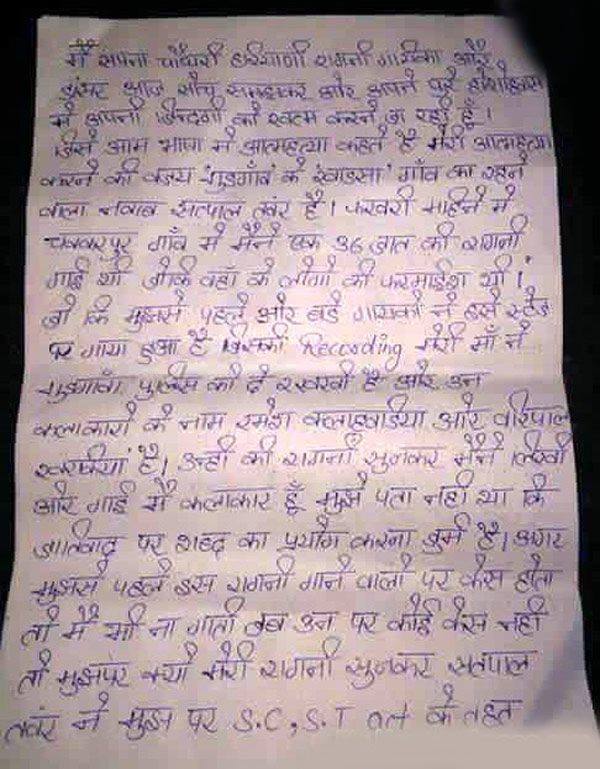 मैं सपना चौधरी हरियाणी रागनी गायिका और
डांसर आज सोच समझकर और अपने पूरे होशोहवास
में अपनी जिन्दगी को खत्म करने जा रही हूँ।
जिसे आम भाषा में आत्महत्या कहते है मेरी आत्महत्या
करने की वजय गुडगाँव के खांडसा गाँव का रहने
वाला नवाब सतपाल तवंर है। फरवरी महिने में
चक्करपुर गाँव में मैंने एक 36 जात की रागनी
गाई थी जोकि वहाँ के लोगो की फरमाईश थी।
जो कि मुझसे पहले और बडे गायको ने इसे स्टेज
पर गाया हुआ है जिसकी Recording मेरी माँ ने
गुडगावाँ पुलिस को दे रखखी है और उन
कलाकारो के नाम रमेश कलाहवडिया और वरिपाल
खरकिया है। उन्ही की रागनी सुनकर मैंने लिखी
और गाई मैं कलाकार हूँ मुझे पता नही था कि
जातिवाद पर शब्द का प्रयोग करना जुर्म है। अगर
मुझसे पहले इस रागनी गाने वालो पर केस होता
तो मैं भी ना गाती जब उन पर कोई केस नही
तो मुझपर क्यों मेरी रागनी सुनकर सतपाल
तवंर ने मुझ पर S.C, S.T act के तहत